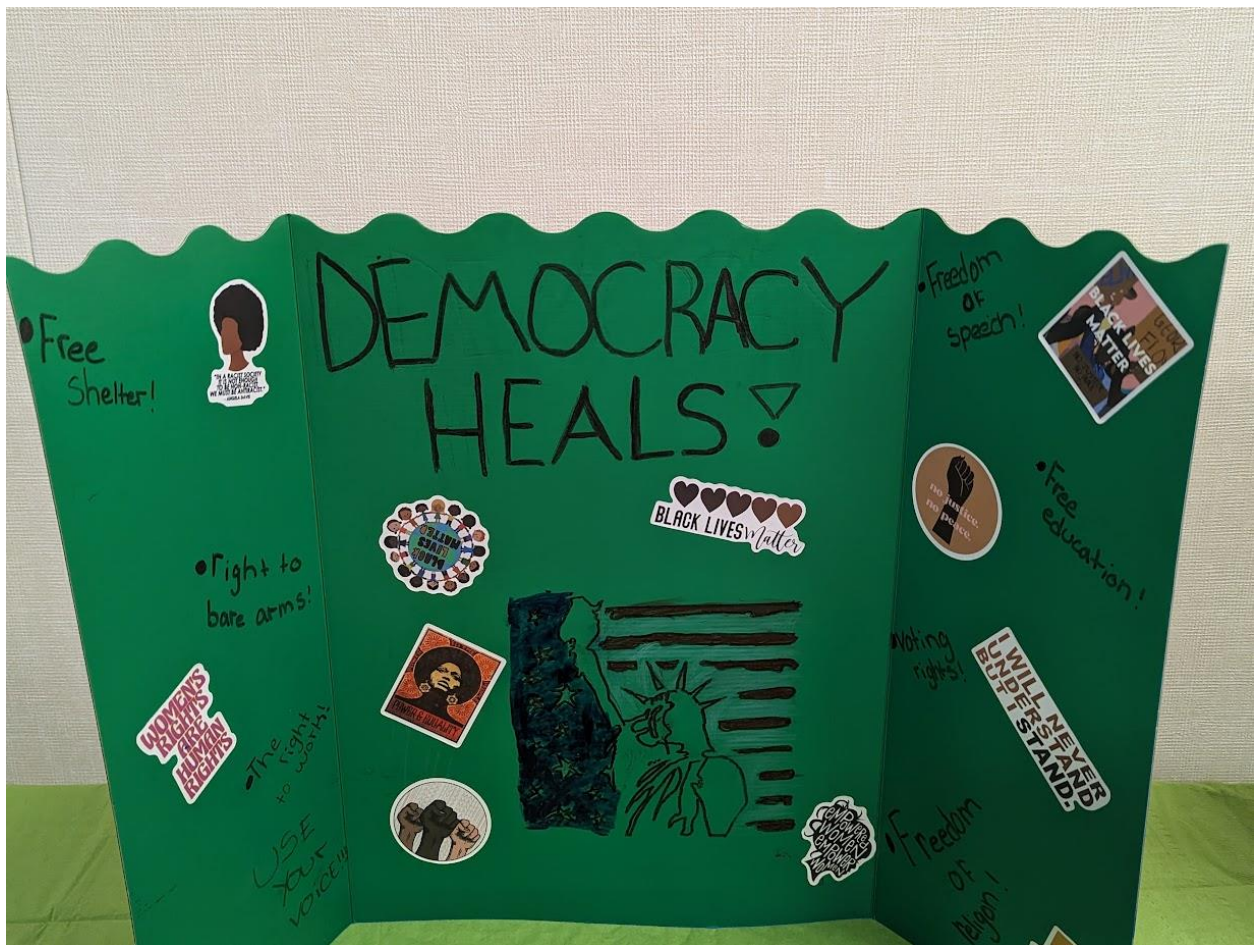 DEMOCRACY
HEALS!
•Free
Shelter!
"IN A RACIST SOCIETY
IT IS NOT ENOUGH
TO BE NON-RACIST,
WE MUST BE ANTIRACIST."
- ANGELA DAVIS
•right to
bare arms!
WOMEN'S
RIGHTS
ARE
HUMAN
RIGHTS
•The
right
to work!
USE
YOUR
VOICE!!!
BLACK
LIVES
MATTER
BLACK LIVES Matter
POWER & EQUALITY
EMPOWERED
WOMEN
EMPOWER
WOMEN
•Freedom
of
speech!
BLACK LIVES
MATTER
no justice.
no peace.
•Free
education!
•Voting
rights!
I WILL NEVER
UNDERSTAND
BUT I STAND.
•Freedom
of
Religon!